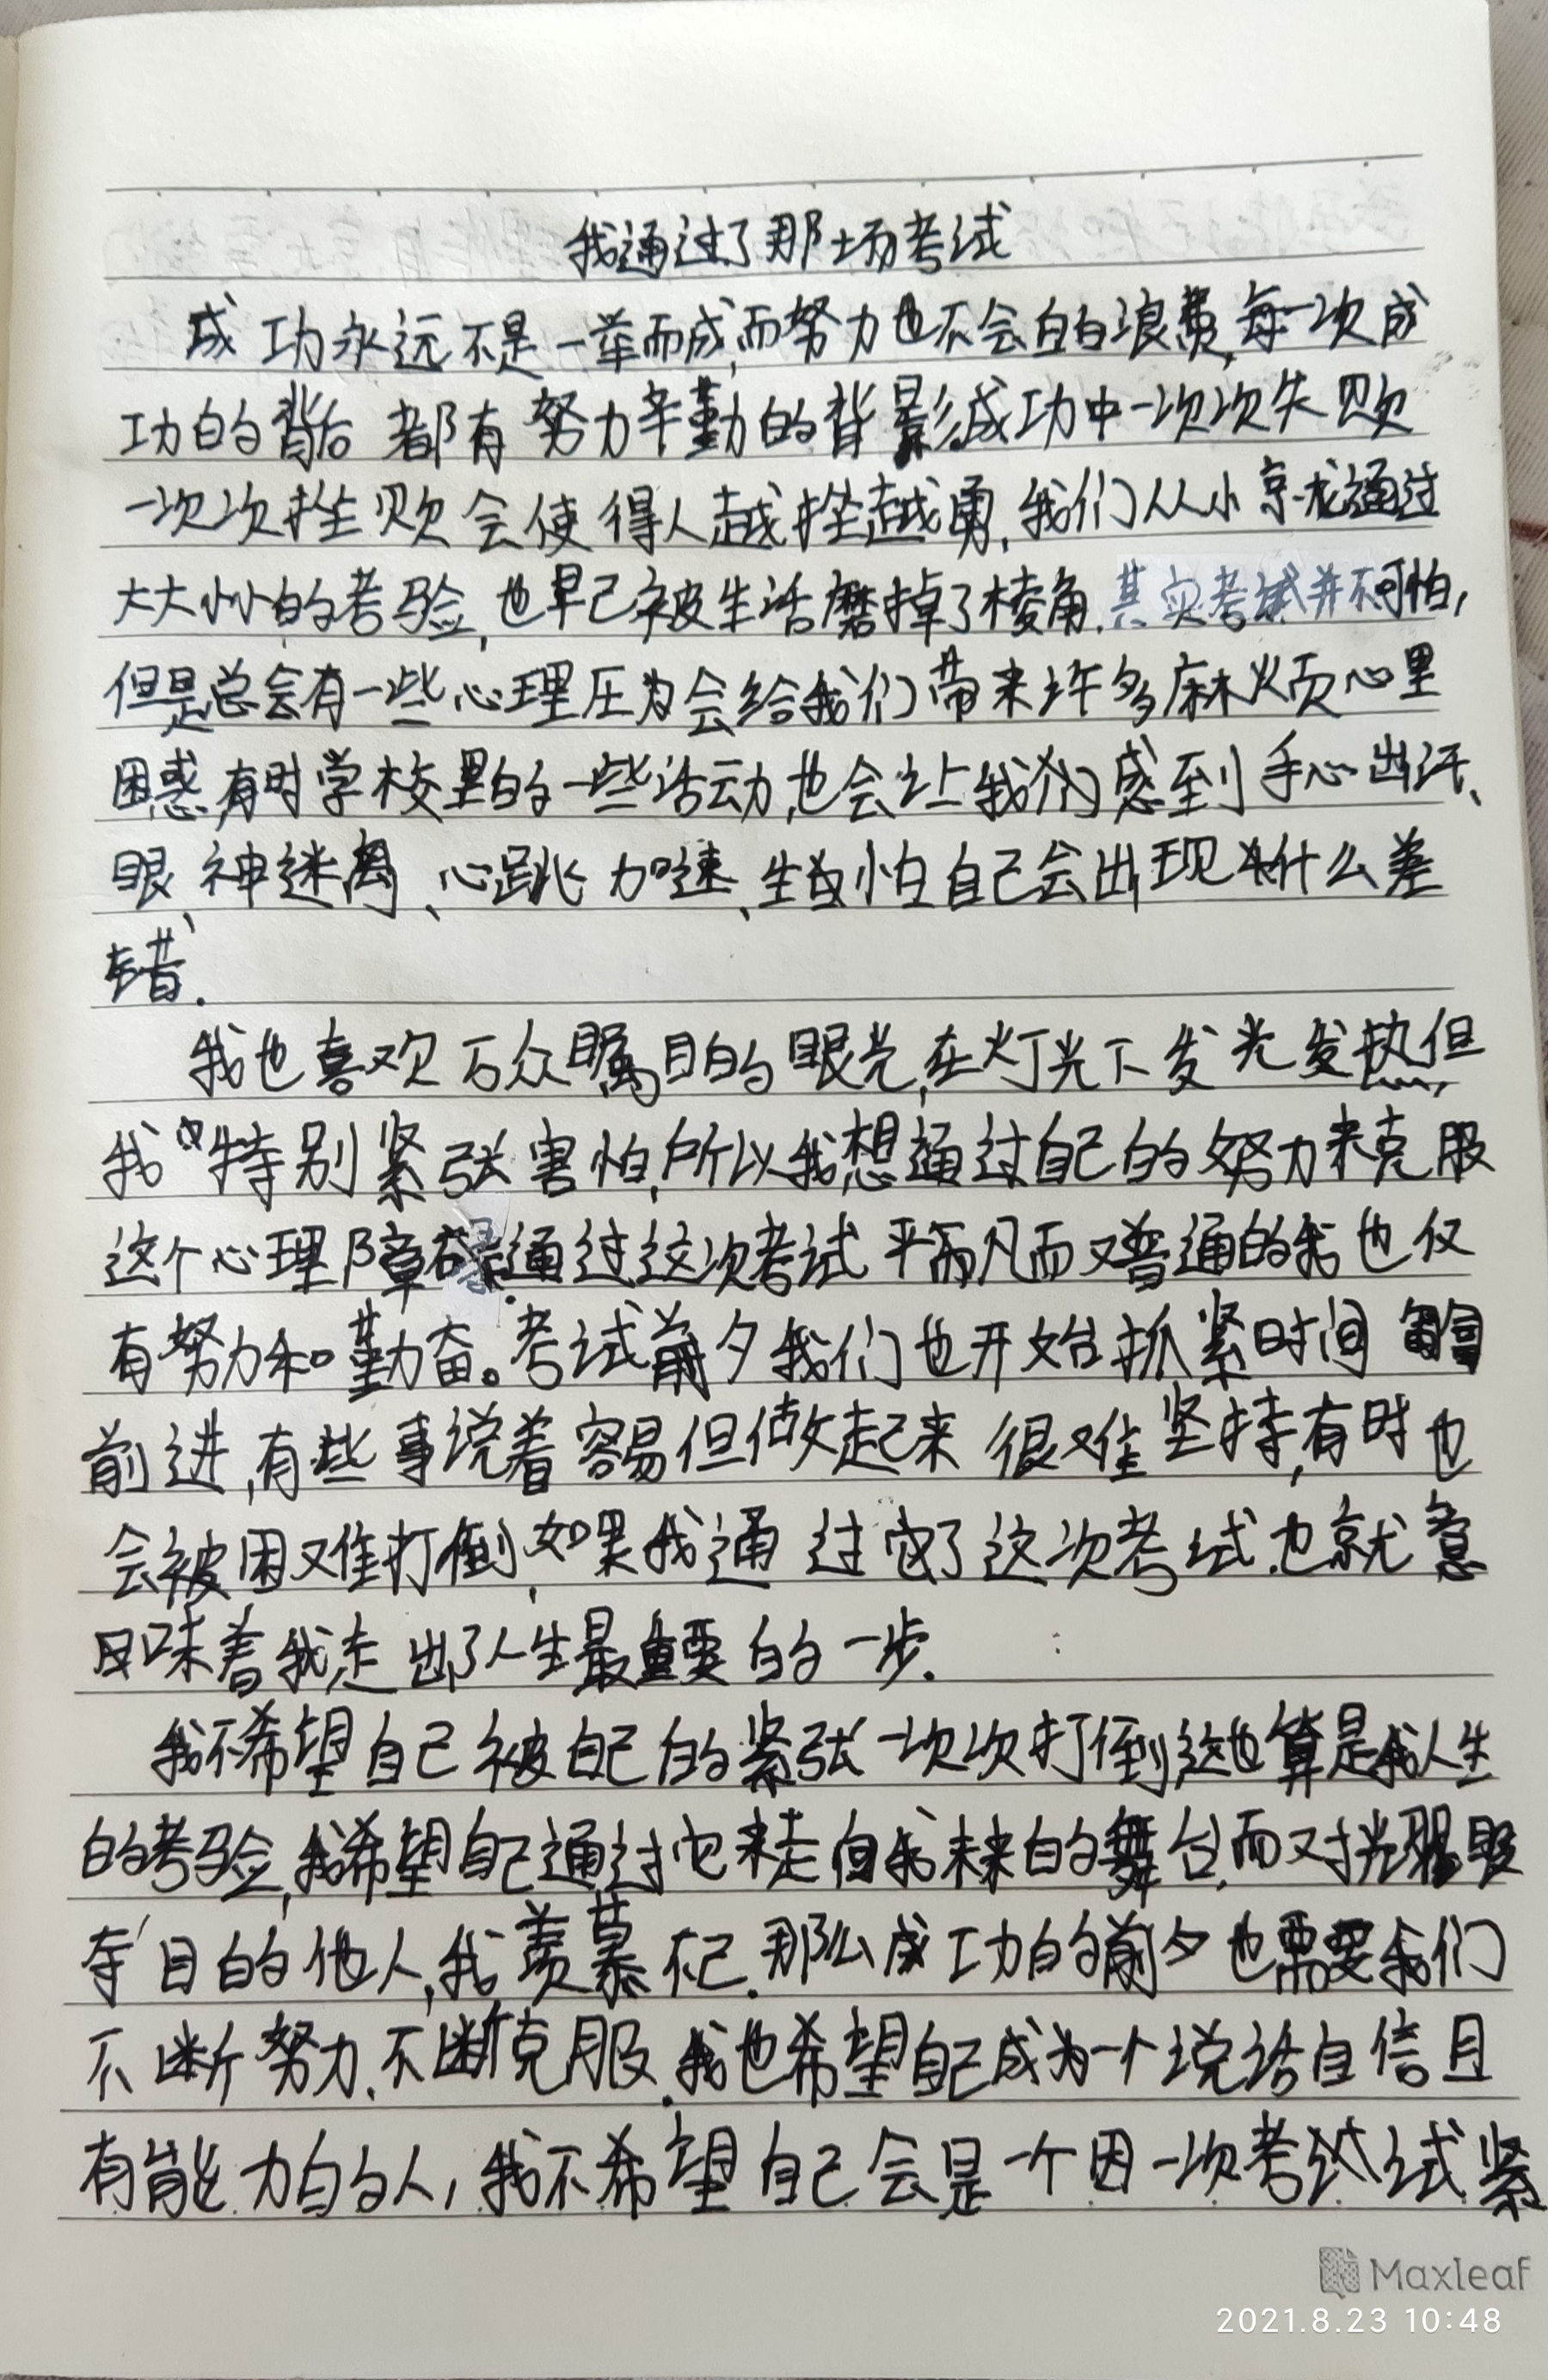 我通过了那场考试
成功永远不是一举而成,而努力也不会白白浪费,每一次成
功的背后都有努力辛勤的背影,成功中一次次失败
一次次挫败会使得人越挫越勇,我们从小就通过
大大小小的考验,也早已被生活磨掉了棱角.其实考试并不可怕,
但是总会有一些心理压为会给我们带来许多麻烦心里
困惑,有时学校里的一些活动,也会让我们感到手心出汗、
眼神迷离、心跳加速、生怕自己会出现什么差
错.
我也喜欢万众瞩目的眼光,在灯光下发光发热,但
我特别紧张害怕,所以我想通过自己的努力来克服
这个心理障碍.通过这次考试平凡而又普通的我也仅
有努力和勤奋。考试前夕我们也开始抓紧时间
前进,有些事说着容易但做起来很难坚持,有时也
会被困难打倒,如果我通过它了这次考试.也就意
味着我走出了人生最重要的一步.
我不希望自己被自己的紧张一次次打倒这也算是我人生
的考验,我希望自己通过它来走向我未来的舞台,而对光眼
夺目的他人,我羡慕不已.那么成功的前夕也需要我们
不断努力、不断克服.我也希望自己成为一个说话自信且
有能力的人,我不希望自己会是一个因一次考试试紧
Maxleaf
2021.8.23 10:48